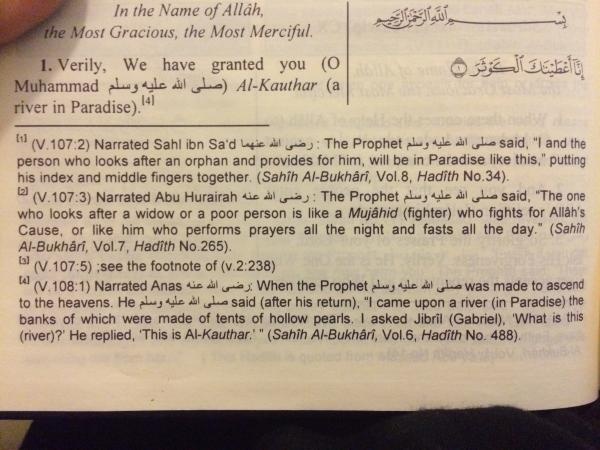 In the Name of Allâh,
the Most Gracious, the Most Merciful.
1. Verily, We have granted you (O
Muhammad صلى الله عليه وسلم) Al-Kauthar (a
river in Paradise).[4]
بِسْمِ اللَّهِ الرَّحْمَٰنِ الرَّحِيمِ
إِنَّا أَعْطَيْنَاكَ الْكَوْثَرَ ١
[1] (V.107:2) Narrated Sahl ibn Sa‘d رضى الله عنهما : The Prophet صلى الله عليه وسلم said, “I and the
person who looks after an orphan and provides for him, will be in Paradise like this,” putting
his index and middle fingers together. (Sahîh Al-Bukhârî, Vol.8, Hadîth No.34).
[2] (V.107:3) Narrated Abu Hurairah رضى الله عنه : The Prophet صلى الله عليه وسلم said, “The one
who looks after a widow or a poor person is like a Mujâhid (fighter) who fights for Allâh’s
Cause, or like him who performs prayers all the night and fasts all the day.” (Sahîh
Al-Bukhârî, Vol.7, Hadîth No.265).
[3] (V.107:5) ;see the footnote of (v.2:238)
[4] (V.108:1) Narrated Anas رضى الله عنه: When the Prophet صلى الله عليه وسلم was made to ascend
to the heavens. He صلى الله عليه وسلم said (after his return), “I came upon a river (in Paradise) the
banks of which were made of tents of hollow pearls. I asked Jibrîl (Gabriel), ‘What is this
(river)?’ He replied, ‘This is Al-Kauthar.’ ” (Sahîh Al-Bukhârî, Vol.6, Hadîth No. 488).